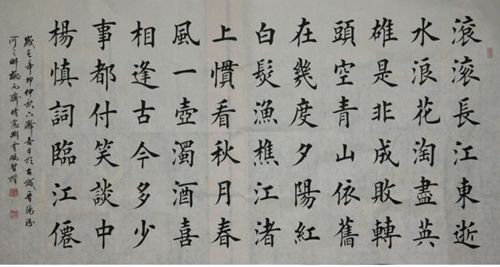 滾滾長江東逝
水浪花淘盡英
雄是非成敗轉
頭空青山依舊
在幾度夕陽紅
白髮漁樵江渚
上慣看秋月春
風一壺濁酒喜
相逢古今多少
事都付笑談中
楊慎詞臨江僊
辛卯仲秋